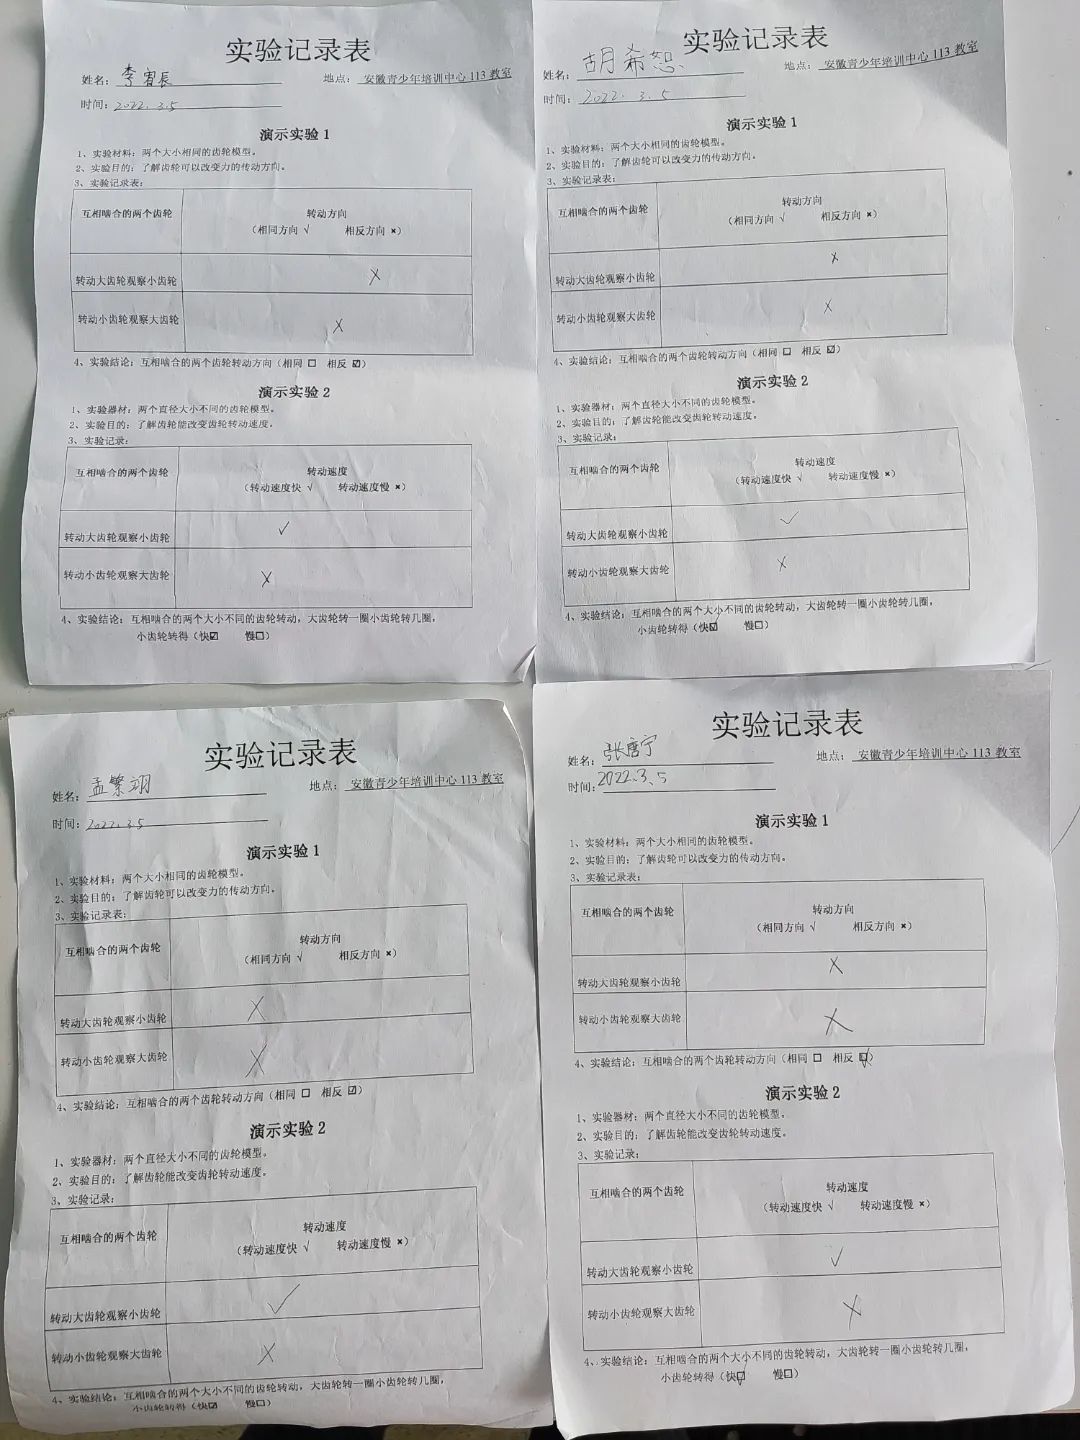 实验记录表
姓名：李宥辰 地点：安徽青少年培训中心 113 教室
时间：2022.3.5
演示实验 1
1、实验材料：两个大小相同的齿轮模型。
2、实验目的：了解齿轮可以改变力的传动方向。
3、实验记录表：
互相啮合的两个齿轮 转动方向
（相同方向 √ 相反方向 ×）
转动大齿轮观察小齿轮 ×
转动小齿轮观察大齿轮 ×
4、实验结论：互相啮合的两个齿轮转动方向（相同 □ 相反 ☑）
演示实验 2
1、实验器材：两个直径大小不同的齿轮模型。
2、实验目的：了解齿轮能改变齿轮转动速度。
3、实验记录：
互相啮合的两个齿轮 转动速度
（转动速度快 √ 转动速度慢 ×）
转动大齿轮观察小齿轮 ✓
转动小齿轮观察大齿轮 ×
4、实验结论：互相啮合的两个大小不同的齿轮转动，大齿轮转一圈小齿轮转几圈，
小齿轮转得（快☑ 慢□）
实验记录表
姓名：胡希恕 地点：安徽青少年培训中心 113 教室
时间：2022.3.5
演示实验 1
1、实验材料：两个大小相同的齿轮模型。
2、实验目的：了解齿轮可以改变力的传动方向。
3、实验记录表：
互相啮合的两个齿轮 转动方向
（相同方向 √ 相反方向 ×）
转动大齿轮观察小齿轮 ×
转动小齿轮观察大齿轮 ×
4、实验结论：互相啮合的两个齿轮转动方向（相同 □ 相反 ☑）
演示实验 2
1、实验器材：两个直径大小不同的齿轮模型。
2、实验目的：了解齿轮能改变齿轮转动速度。
3、实验记录：
互相啮合的两个齿轮 转动速度
（转动速度快 √ 转动速度慢 ×）
转动大齿轮观察小齿轮 ✓
转动小齿轮观察大齿轮 ×
4、实验结论：互相啮合的两个大小不同的齿轮转动，大齿轮转一圈小齿轮转几圈，
小齿轮转得（快☑ 慢□）
实验记录表
姓名：孟繁翊 地点：安徽青少年培训中心 113 教室
时间：2022.3.5
演示实验 1
1、实验材料：两个大小相同的齿轮模型。
2、实验目的：了解齿轮可以改变力的传动方向。
3、实验记录表：
互相啮合的两个齿轮 转动方向
（相同方向 √ 相反方向 ×）
转动大齿轮观察小齿轮 ×
转动小齿轮观察大齿轮 ×
4、实验结论：互相啮合的两个齿轮转动方向（相同 □ 相反 ☑）
演示实验 2
1、实验器材：两个直径大小不同的齿轮模型。
2、实验目的：了解齿轮能改变齿轮转动速度。
3、实验记录：
互相啮合的两个齿轮 转动速度
（转动速度快 √ 转动速度慢 ×）
转动大齿轮观察小齿轮 ✓
转动小齿轮观察大齿轮 ×
4、实验结论：互相啮合的两个大小不同的齿轮转动，大齿轮转一圈小齿轮转几圈，
小齿轮转得（快☑ 慢□）
实验记录表
姓名：张唐宁 地点：安徽青少年培训中心 113 教室
时间：2022.3.5
演示实验 1
1、实验材料：两个大小相同的齿轮模型。
2、实验目的：了解齿轮可以改变力的传动方向。
3、实验记录表：
互相啮合的两个齿轮 转动方向
（相同方向 √ 相反方向 ×）
转动大齿轮观察小齿轮 ×
转动小齿轮观察大齿轮 ×
4、实验结论：互相啮合的两个齿轮转动方向（相同 □ 相反 ☑）
演示实验 2
1、实验器材：两个直径大小不同的齿轮模型。
2、实验目的：了解齿轮能改变齿轮转动速度。
3、实验记录：
互相啮合的两个齿轮 转动速度
（转动速度快 √ 转动速度慢 ×）
转动大齿轮观察小齿轮 ✓
转动小齿轮观察大齿轮 ×
4、实验结论：互相啮合的两个大小不同的齿轮转动，大齿轮转一圈小齿轮转几圈，
小齿轮转得（快☑ 慢□）